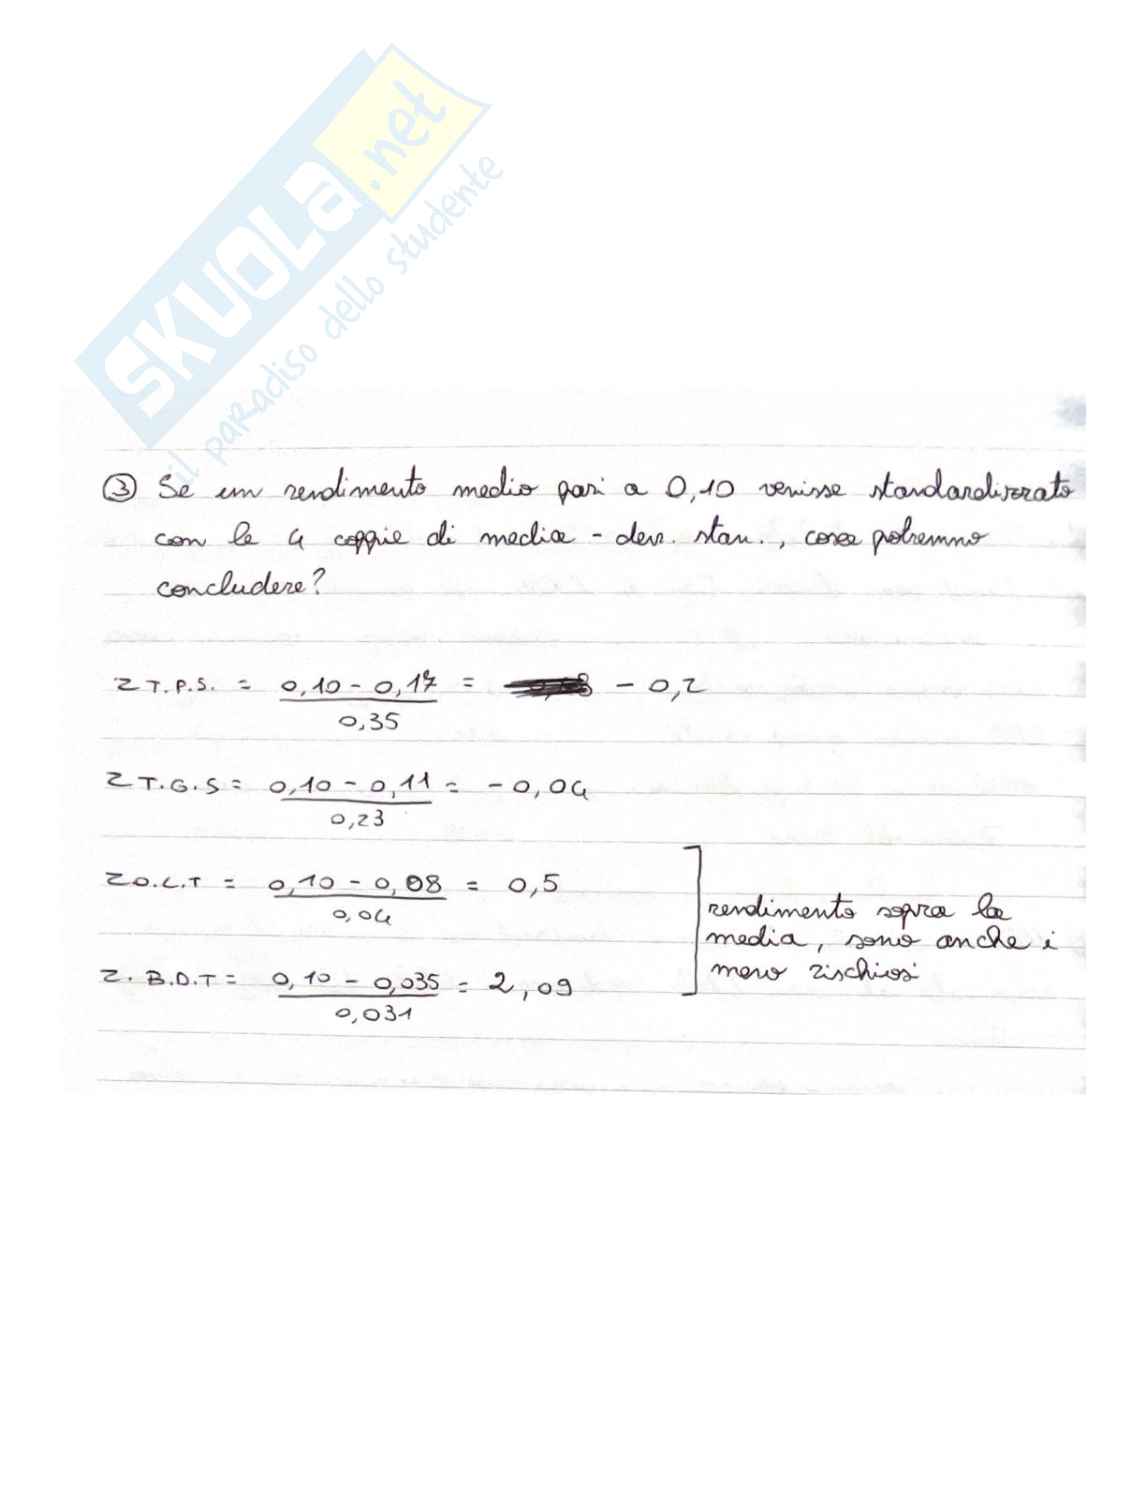 SKUOLA.net
il paradiso dello studente
③ Se un rendimento medio pari a 0,10 venisse standardizzato
con le 4 coppie di media - dev. stan., cosa potremmo
concludere?
Z T.P.S. = 0,10 - 0,17 / 0,35 = - 0,2
Z T.G.S = 0,10 - 0,11 / 0,23 = - 0,04
Z O.L.T = 0,10 - 0,08 / 0,04 = 0,5
Z. B.D.T = 0,10 - 0,035 / 0,031 = 2,09
rendimento sopra la
media, sono anche i
meno rischiosi